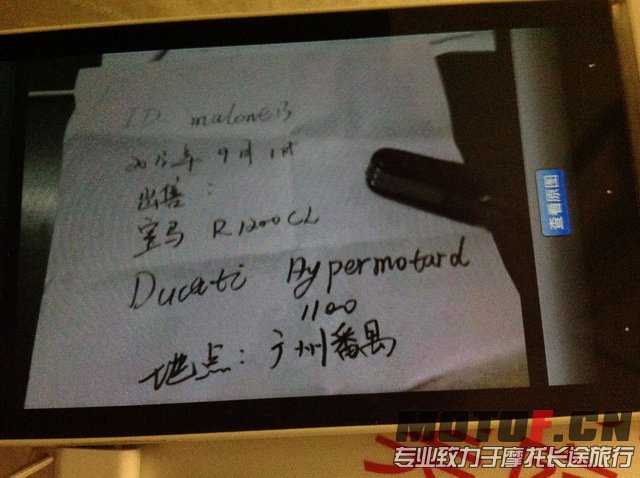 ID malone13
2013年 9月1日
出售:
宝马 R1200CL
Ducati Hypermotard
1100
地点: 广州番禺
查看原图
MOTOF.CN
专业致力于摩托长途旅行